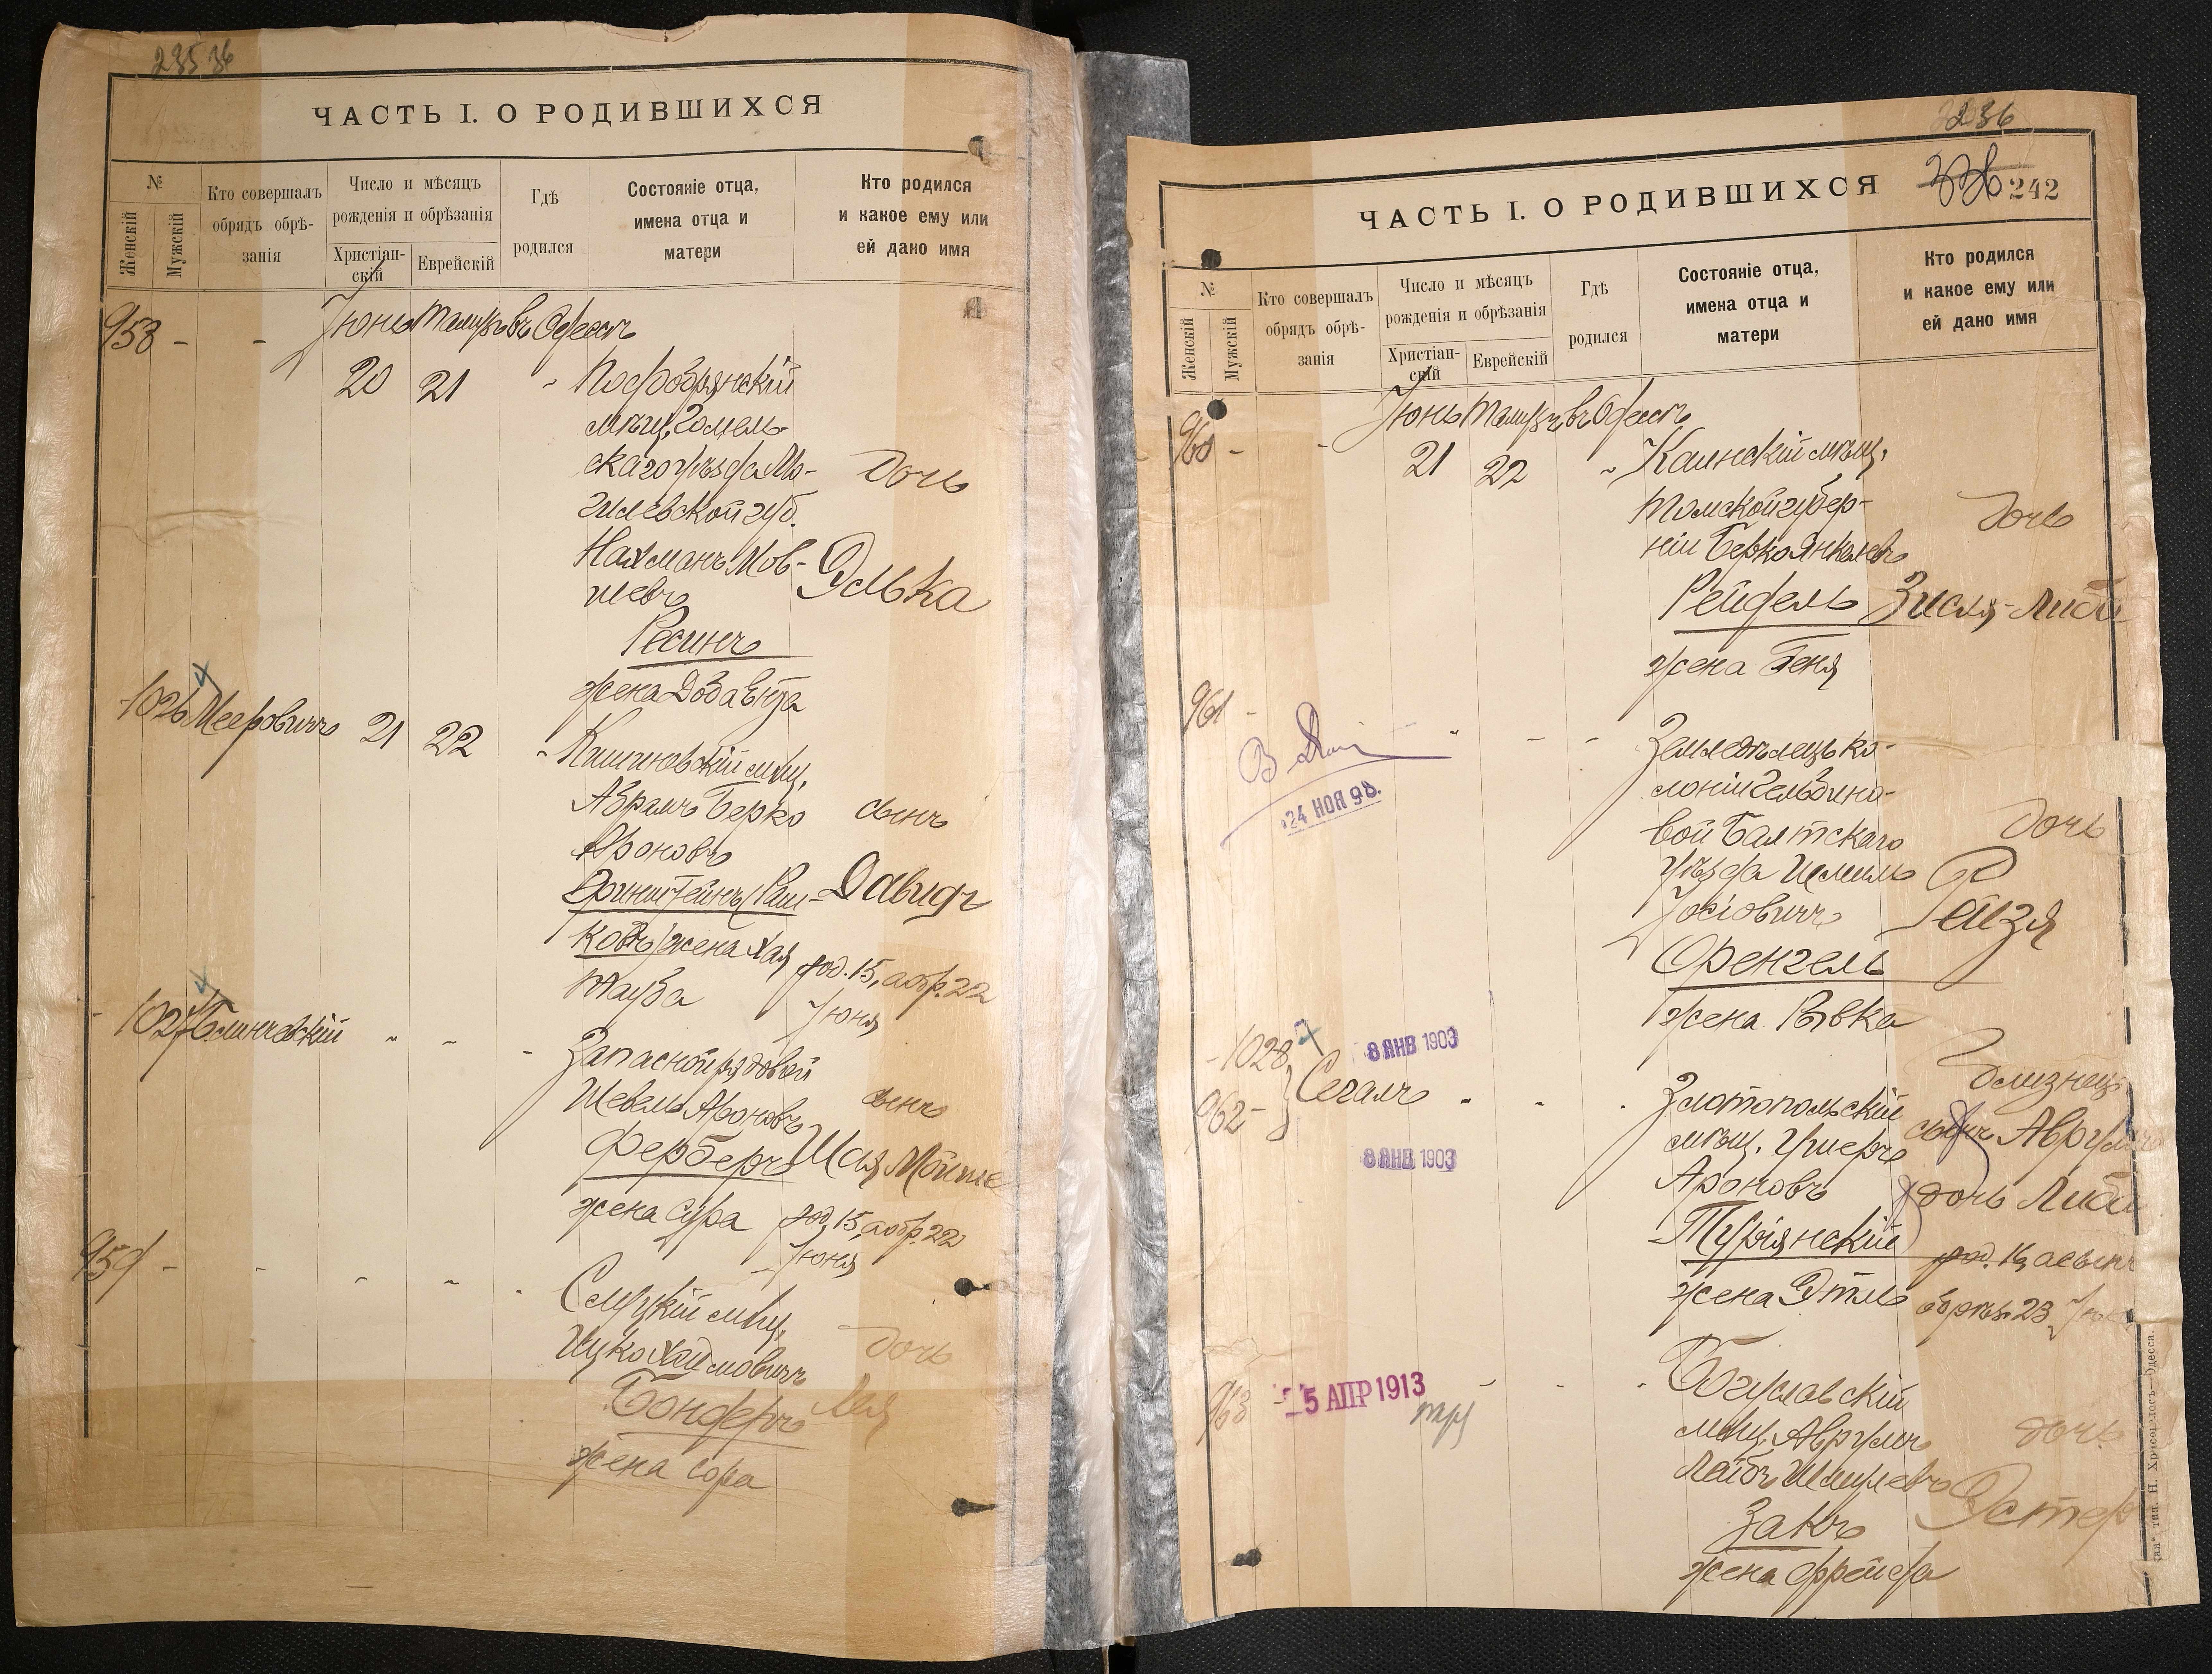 ЧАСТЬ I. О РОДИВШИХСЯ
№
Женскій
Мужскій
Кто совершалъ
обрядъ обрѣ-
занія
Число и мѣсяцъ
рожденія и обрѣзанія
Христіан-
скій
Еврейскій
Гдѣ
родился
Состояніе отца,
имена отца и
матери
Кто родился
и какое ему или
ей дано имя
958 - - Іюнь Тамузъ въ Одессѣ
20 21
мѣщ. Гомель-
скаго уѣзда Мо-
гилевской губ.
Нахманъ Мов-
шевъ
Ресинъ
жена Доба Ента
дочь
Элька
1026 Мееровичъ 21 22
Кишиневскій мѣщ.
Абрамъ Берко
Ароновъ
Гринштейнъ (Раш-
ковъ) жена Хая
Тауба
сынъ
Давидъ
род. 15, а обр. 22
Іюня
1027
Запасной рядовой
Шевель Ароновъ
Ферберъ
жена Сура
сынъ
Шая Мойше
род. 15, а обр. 22
Іюня
959 -
Слуцкій мѣщ.
Ицко Хаймовичъ
Бондеръ
жена Сора
дочь
Лея
236
ЧАСТЬ I. О РОДИВШИХСЯ
242
№
Женскій
Мужскій
Кто совершалъ
обрядъ обрѣ-
занія
Число и мѣсяцъ
рожденія и обрѣзанія
Христіан-
скій
Еврейскій
Гдѣ
родился
Состояніе отца,
имена отца и
матери
Кто родился
и какое ему или
ей дано имя
960 - - Іюнь Тамузъ въ Одессѣ
21 22
Каинскій мѣщ.
Томской губер-
ніи Берко Янкелевъ
Рейдель
жена Геня
дочь
Зисля-Либа
961 -
24 НОЯ 98.
Земледѣлецъ ко-
лоніи Гельбино-
вой Балтскаго
уѣзда Шмиль
Іосіовичъ
Френгель
жена Ривка
дочь
Рейзя
1028
962 -
Сегалъ
8 ЯНВ 1903
8 ЯНВ 1903
Златопольскій
мѣщ. Ушеръ
Ароновъ
Турянскій
жена Этль
близнец
сынъ Аврумъ
дочь Либа
род. 16, а сынъ
обрѣз. 23
963 -
25 АПР 1913
Богуславскій
мѣщ. Аврумъ
Лейбъ Шмулевъ
Закъ
жена Фрейда
дочь
Эстер
тип. Н. Хрисогелосъ—Одесса.